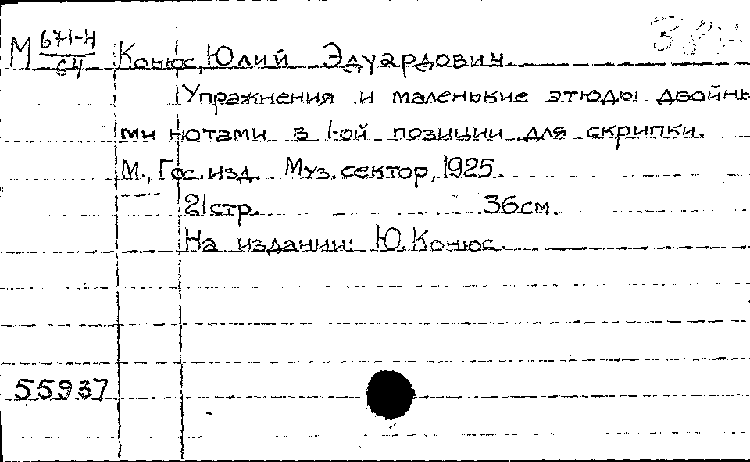 М 671-4/64 Конюс, Юлий Эдуардович.
Упражнения и маленькие этюды двойны
ми нотами в 1-ой позиции для скрипки.
М., Гос. изд. Муз. сектор, 1925.
21 стр. 36 см.
На издании: Ю. Конюс.
55937